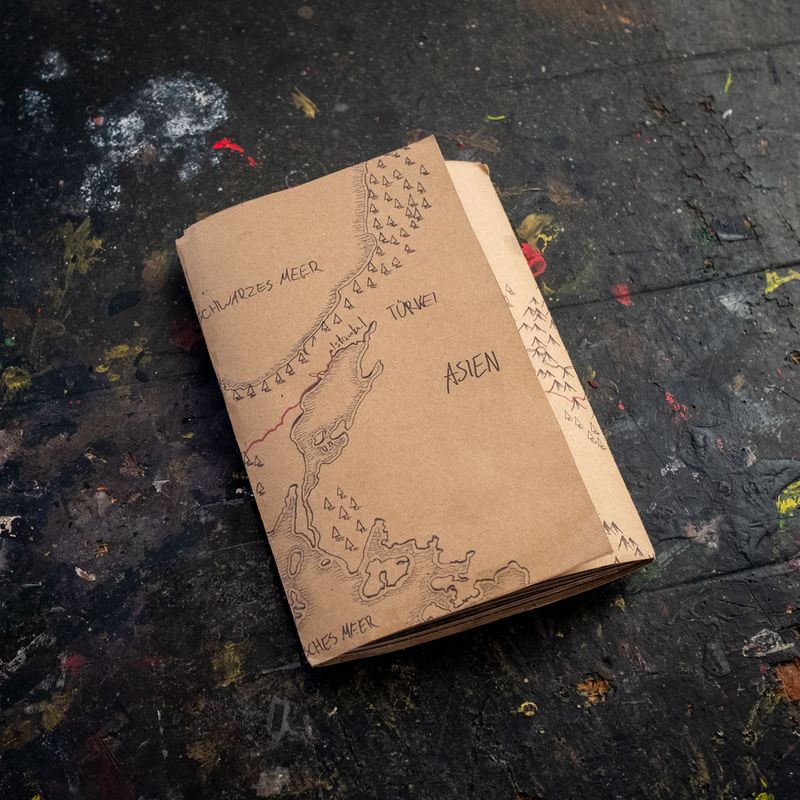 SCHWARZES MEER
TÜRKEI
Istanbul
ASIEN
SCHES MEER